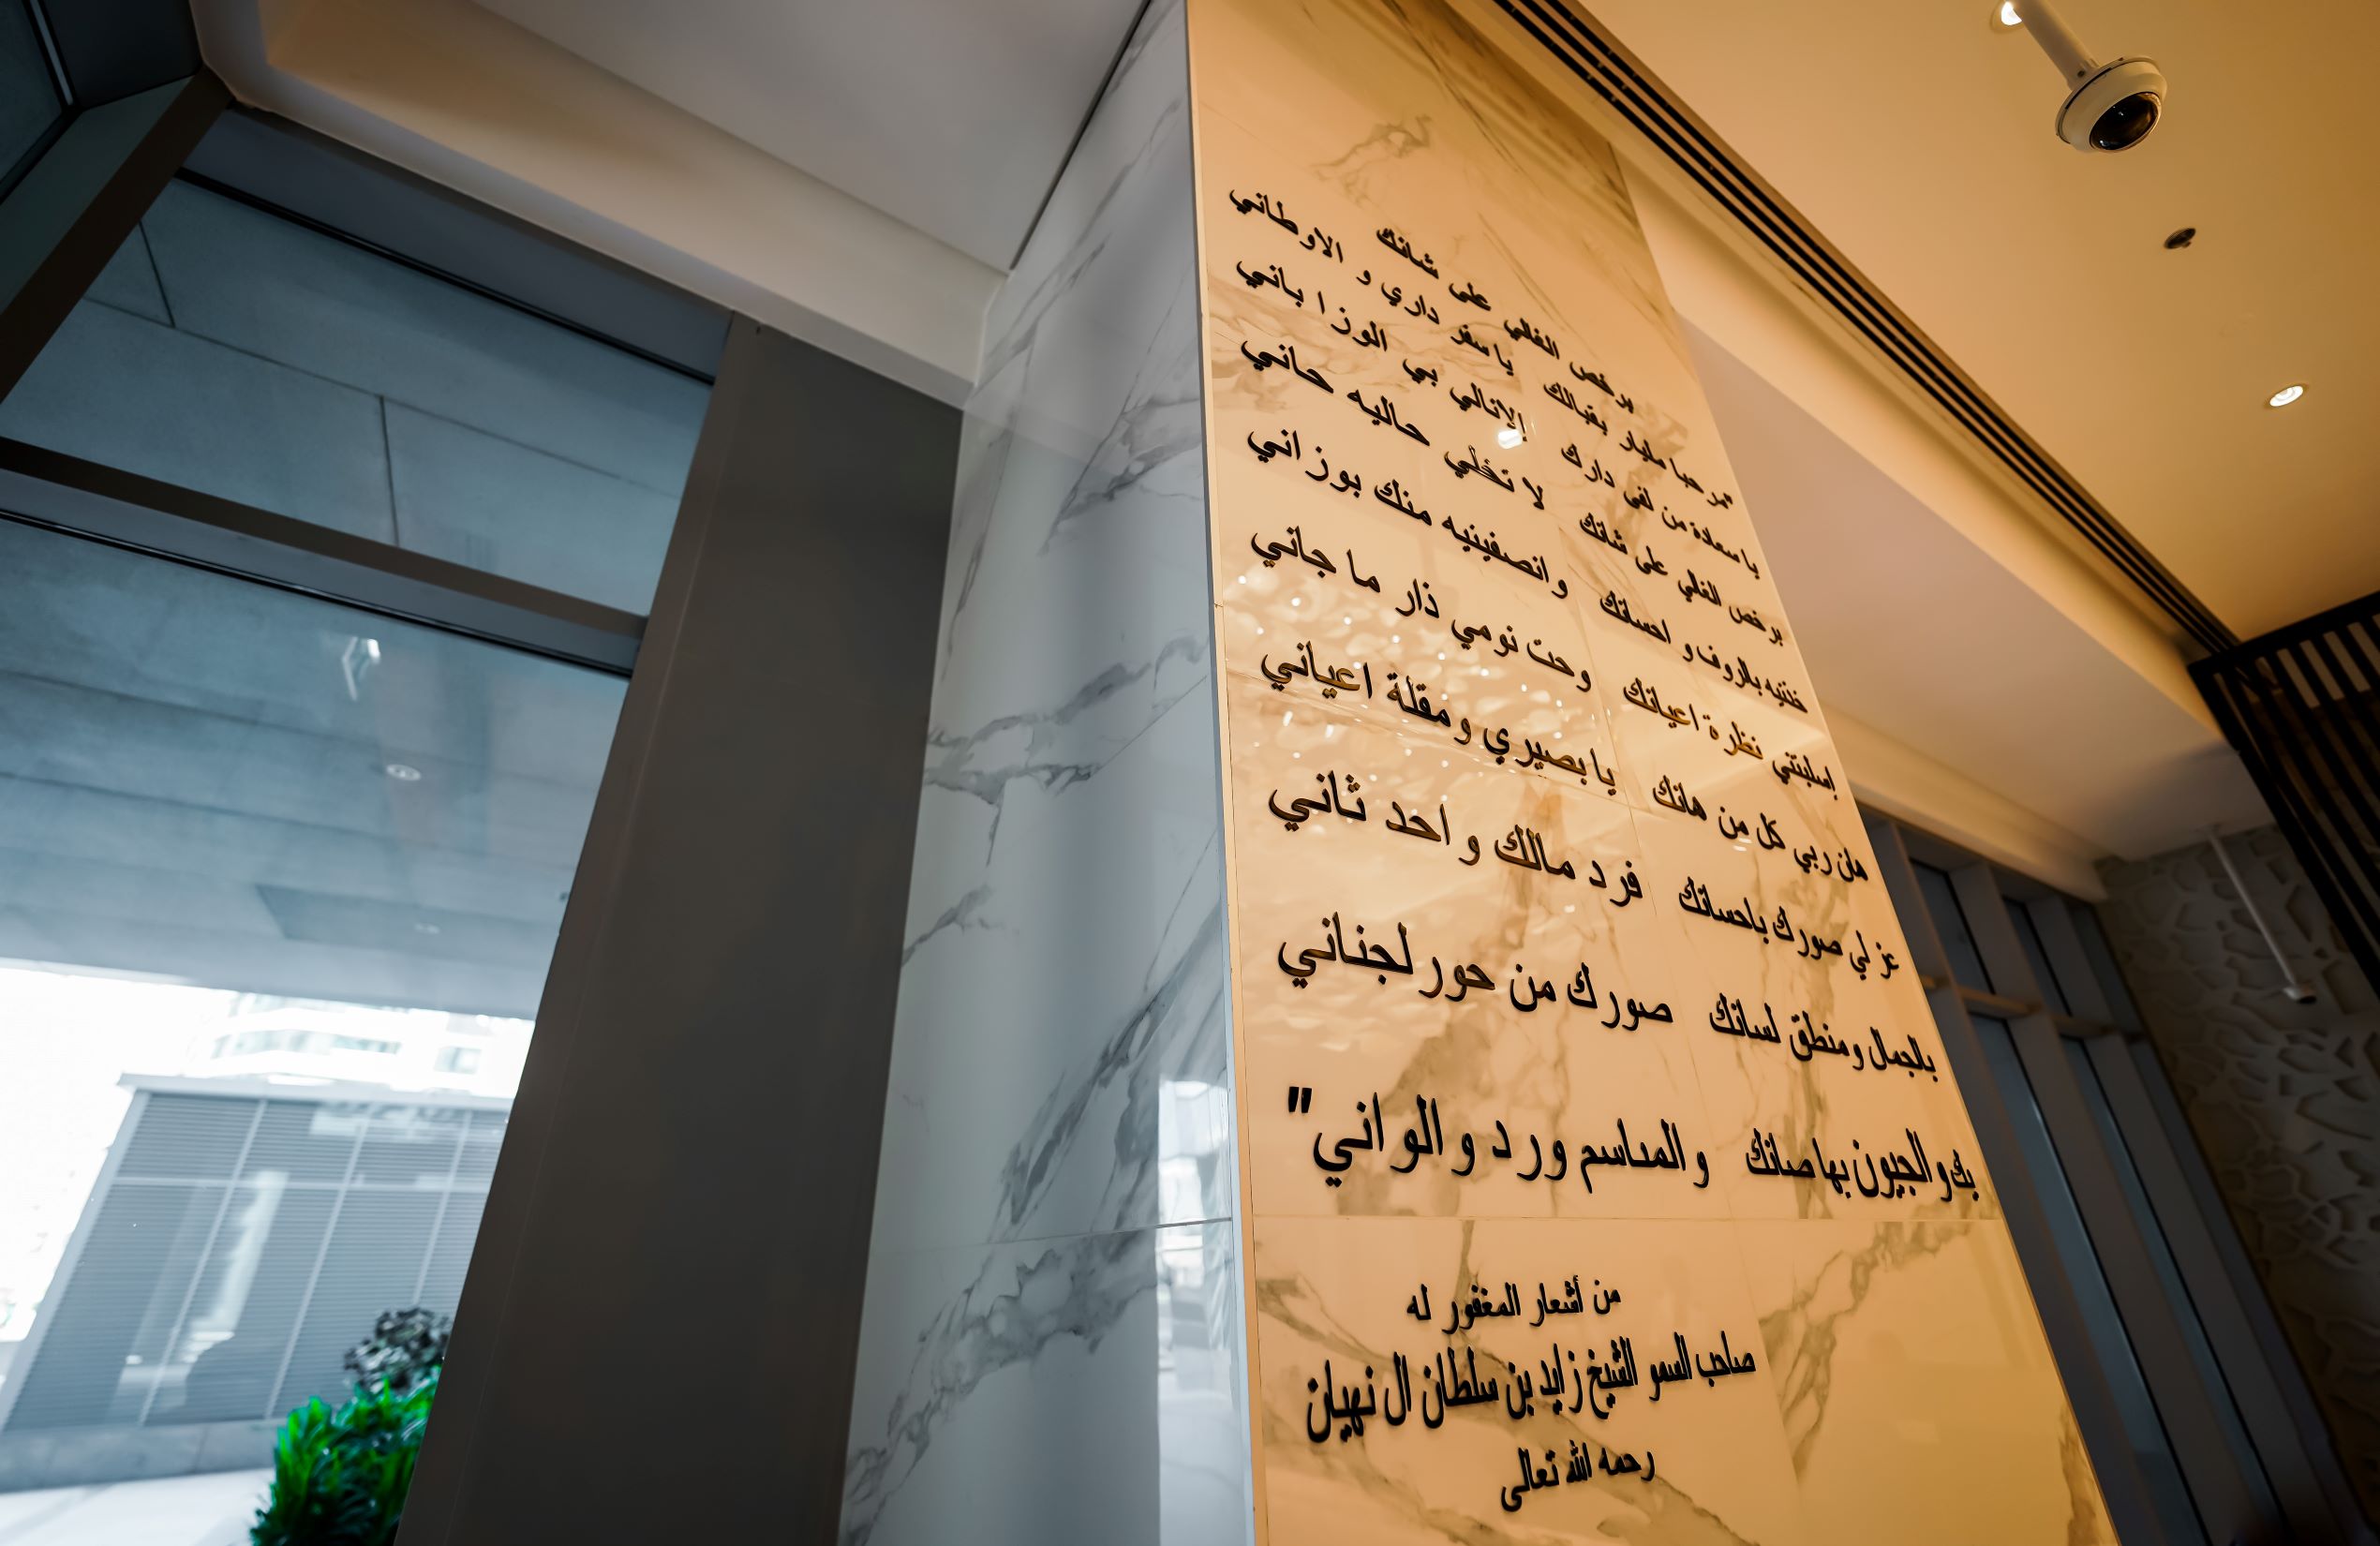 يرخص الغالي على شانك
"مرحبا مليار بقبالك ياسفر داري و الاوطاني
ياسعادة من لفى دارك إلانالي بي الوزا باني
يرخص الغالي على شانك لا تخلي حاليه حاني
خذنيه بالروف و احسانك وانصفينيه منك بوزاني
إسلبتني نظرة اعيانك وحت نومي ذار ما جاني
هان ربي كل من هانك يا بصيري ومقلة اعياني
عز لي صورك باحسانك فرد مالك واحد ثاني
بالجمال ومنطق لسانك صورك من حور لجناني
بك والجيون بها صانك والمباسم ورد و الواني"
من أشعار المغفور له
صاحب السمو الشيخ زايد بن سلطان ال نهيان
رحمه الله تعالى